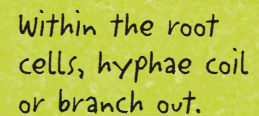 Within the root
cells, hyphae coil
or branch out.